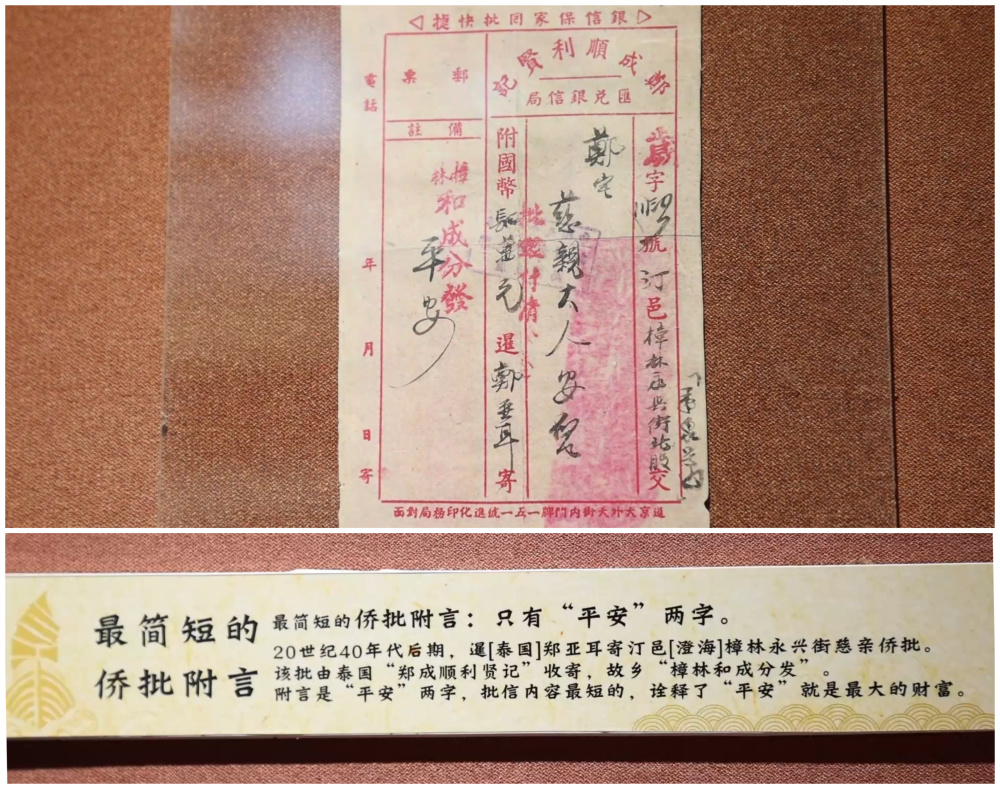 ◁捷快批回家保信銀▷
鄭成順利賢記
匯兌銀信局
字
號
汀邑樟林永興街北股交
鄭宅
慈親大人安啓
批銀付清
附國幣
萬元
暹鄭亞耳寄
郵票
備註
樟林
和成分發
平安
電話
年月日寄
面對局務印化進號一五一牌門內街天外大京道
最简短的
侨批附言
最简短的侨批附言：只有“平安”两字。
20世纪40年代后期，暹[泰国]郑亚耳寄汀邑[澄海]樟林永兴街慈亲侨批。
该批由泰国“郑成顺利贤记”收寄，故乡“樟林和成分发”。
附言是“平安”两字，批信内容最短的，诠释了“平安”就是最大的财富。